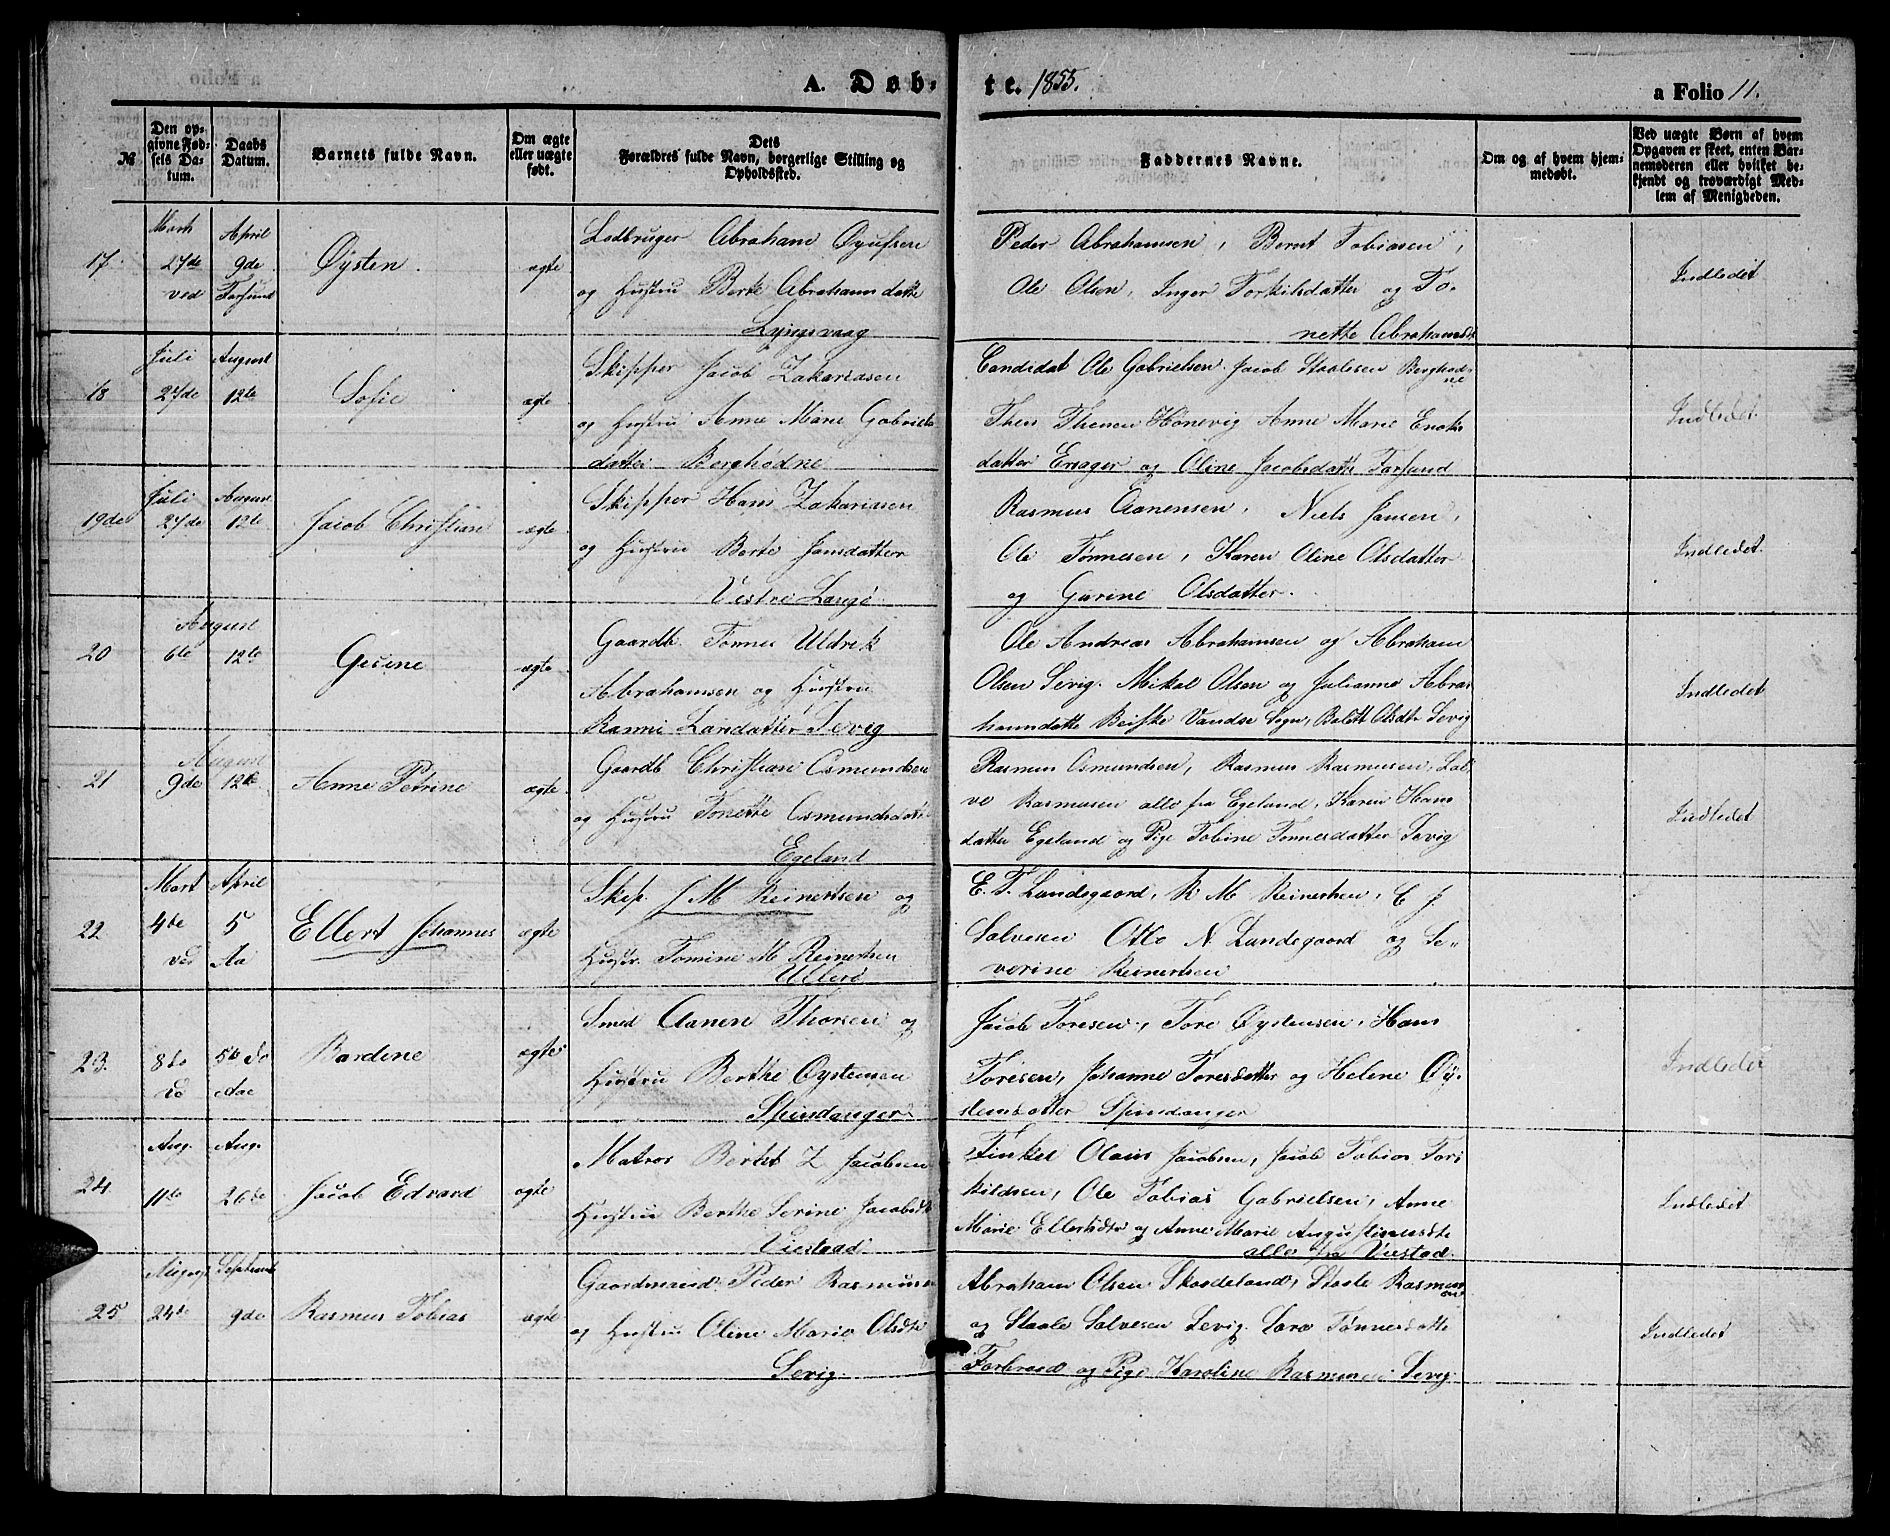 A. Døb-
te. 1855.
a Folio 11.
№
Den op-
givne Fød-
sels Da-
tum.
Daabs
Datum.
Barnets fulde Navn.
Om ægte
eller uægte
født.
Dets
Forældres fulde Navn, borgerlige Stilling og
Opholdssted.
Faddernes Navne.
Om og af hvem hjem-
medøbt.
Ved uægte Børn af hvem
Opgaven er skeet, enten Bar-
nemoderen eller hvilket be-
kjendt og troværdigt Med-
lem af Menigheden.
17
27de
ved
April
9de
Farsund
Øysten.
ægte
Abraham
og Hustru Berte Abrahamsdatter
Lyngsvaag
Peder Abrahamsen, Bernt Tobiasen,
Ole Olsen, Inger Torkilsdatter og To-
nette Abrahamsdt
Indledet
18
Juli
27de
August
12te
Sofie
ægte
Skipper Jacob Zakariasen
og Hustru Anne Marie Gabriels
datter Berghødne
Candidat Ole Gabrielsen. Jacob Staalesen Berghød-
ne
Theis Hønevig Anne Marie
datter og Oline Jacobsdatt Farsund
Indledet.
19de
Juli
27de
August
12te
Jacob Christian
ægte
Skipper Hans Zakariasen
og Hustru Berte Jansdatter
Vestre Langø
Rasmus Aanensen, Niels Jansen,
Ole Tønnesen, Karen Oline Olsdatter
og Gurine Olsdatter.
Indledet.
20
August
6te
12te
Gesine
ægte
Gaardb. Tønnes Uldrik
Abrahamsen og Hustru
Larsdatter Sevig
Ole Andreas Abrahamsen og Abraham
Olsen Sevig. Mikal Olsen og Julianne Abra-
hamsdatte Vandse Sogn, Olsdtr Sevig
Indledet
21
August
9de
12te
Anne Petrine
ægte
Gaardb Christian Osmundsen
og Hustru Tonette Osmundsdatt
Egeland
Rasmus Osmundsen, Rasmus Rasmusen, Sal-
ve Rasmusen alle fra Egeland, Karen Hans
datter Egeland og Pige Tobine Tønnesdatter Sevig
Indledet
22
Mart
4de
ved
April
5
Aa
Ellert Johannes
ægte
Skip. J M Reinertsen og
Hustr. Tomine M. Reinertsen
Ullerø
E. T. Lundegaard, R M Reinertsen, C J.
Salvesen Otto N. Lundegaard og Se-
verine Reinertsen
23.
8de
do
5te do
Aae
Bardine
ægte
Smed Aanen Thorsen og
Hustru Berthe Øystensen
Spindanger
Jacob Toresen, Tore Øystensen, Hans
Toresen, Johanne Toresdatter og Helene Øy-
stensdatter Spindanger
Indledet
24.
Aug.
11te
Aug.
26de
Jacob Edvard
ægte
Matros Berthel Z Jacobsen
Hustru Berthe Serine Jacobsdt
Viestaad
Olaus Jacobsen, Jacob Tobias Tor-
kildsen, Ole Tobias Gabrielsen, Anne
Marie Ellertsdtr og Anne Marie Augustinusdtr
alle fra Viestad.
Indledet
25
August
24de
September
9de
Rasmus Tobias
ægte
Gaardmand Peder Rasmusen
og Hustru Oline Marie Olsdtr
Sevig.
Abraham Olsen Skaadeland, Staale Rasmus-
sen
og Staale Salvesen Sevig. Tønnesdatte
og Pige Karoline Sevig.
Indledet